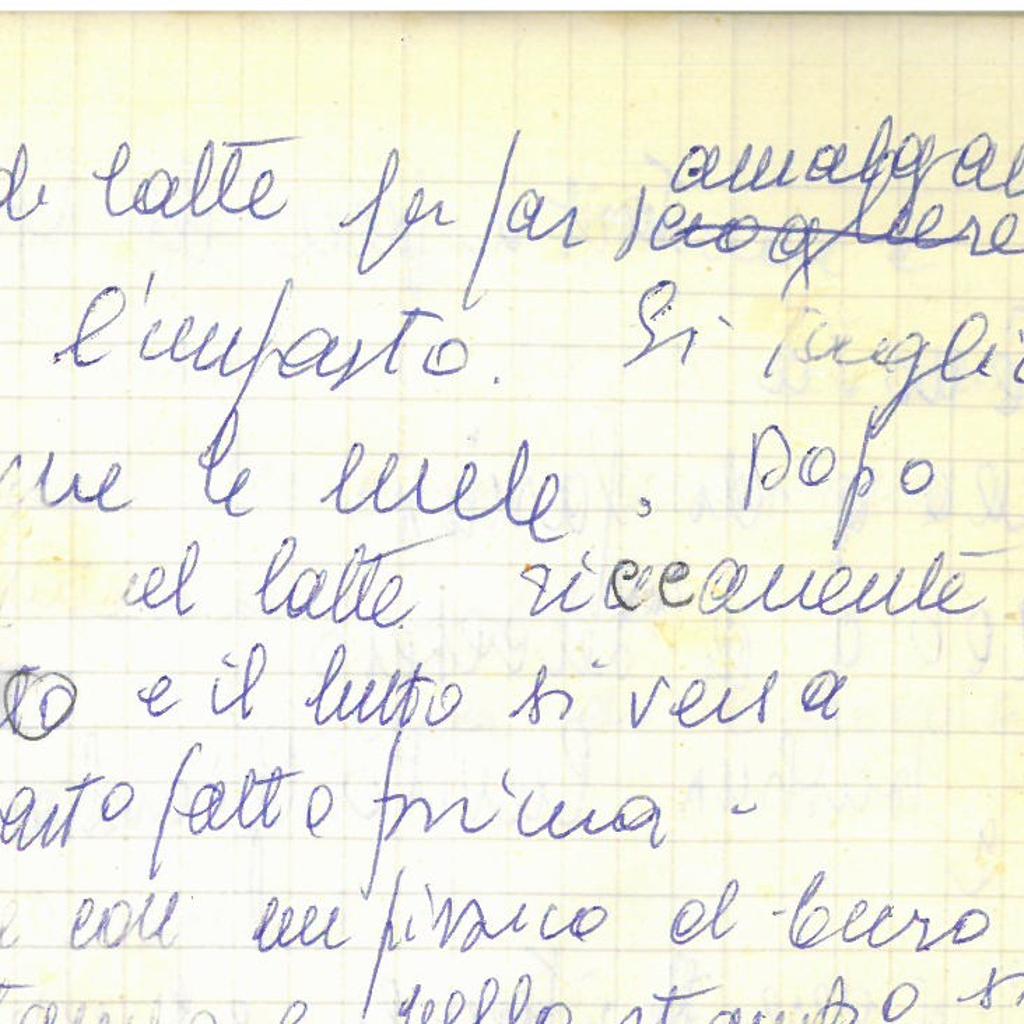 amalga
di latte per far sciogliere
l'impasto. Si taglia
le mele. Dopo
el latte riccamente
to e il tutto si versa
asto fatto prima -
con un pizzico di burro
e nello stampo si